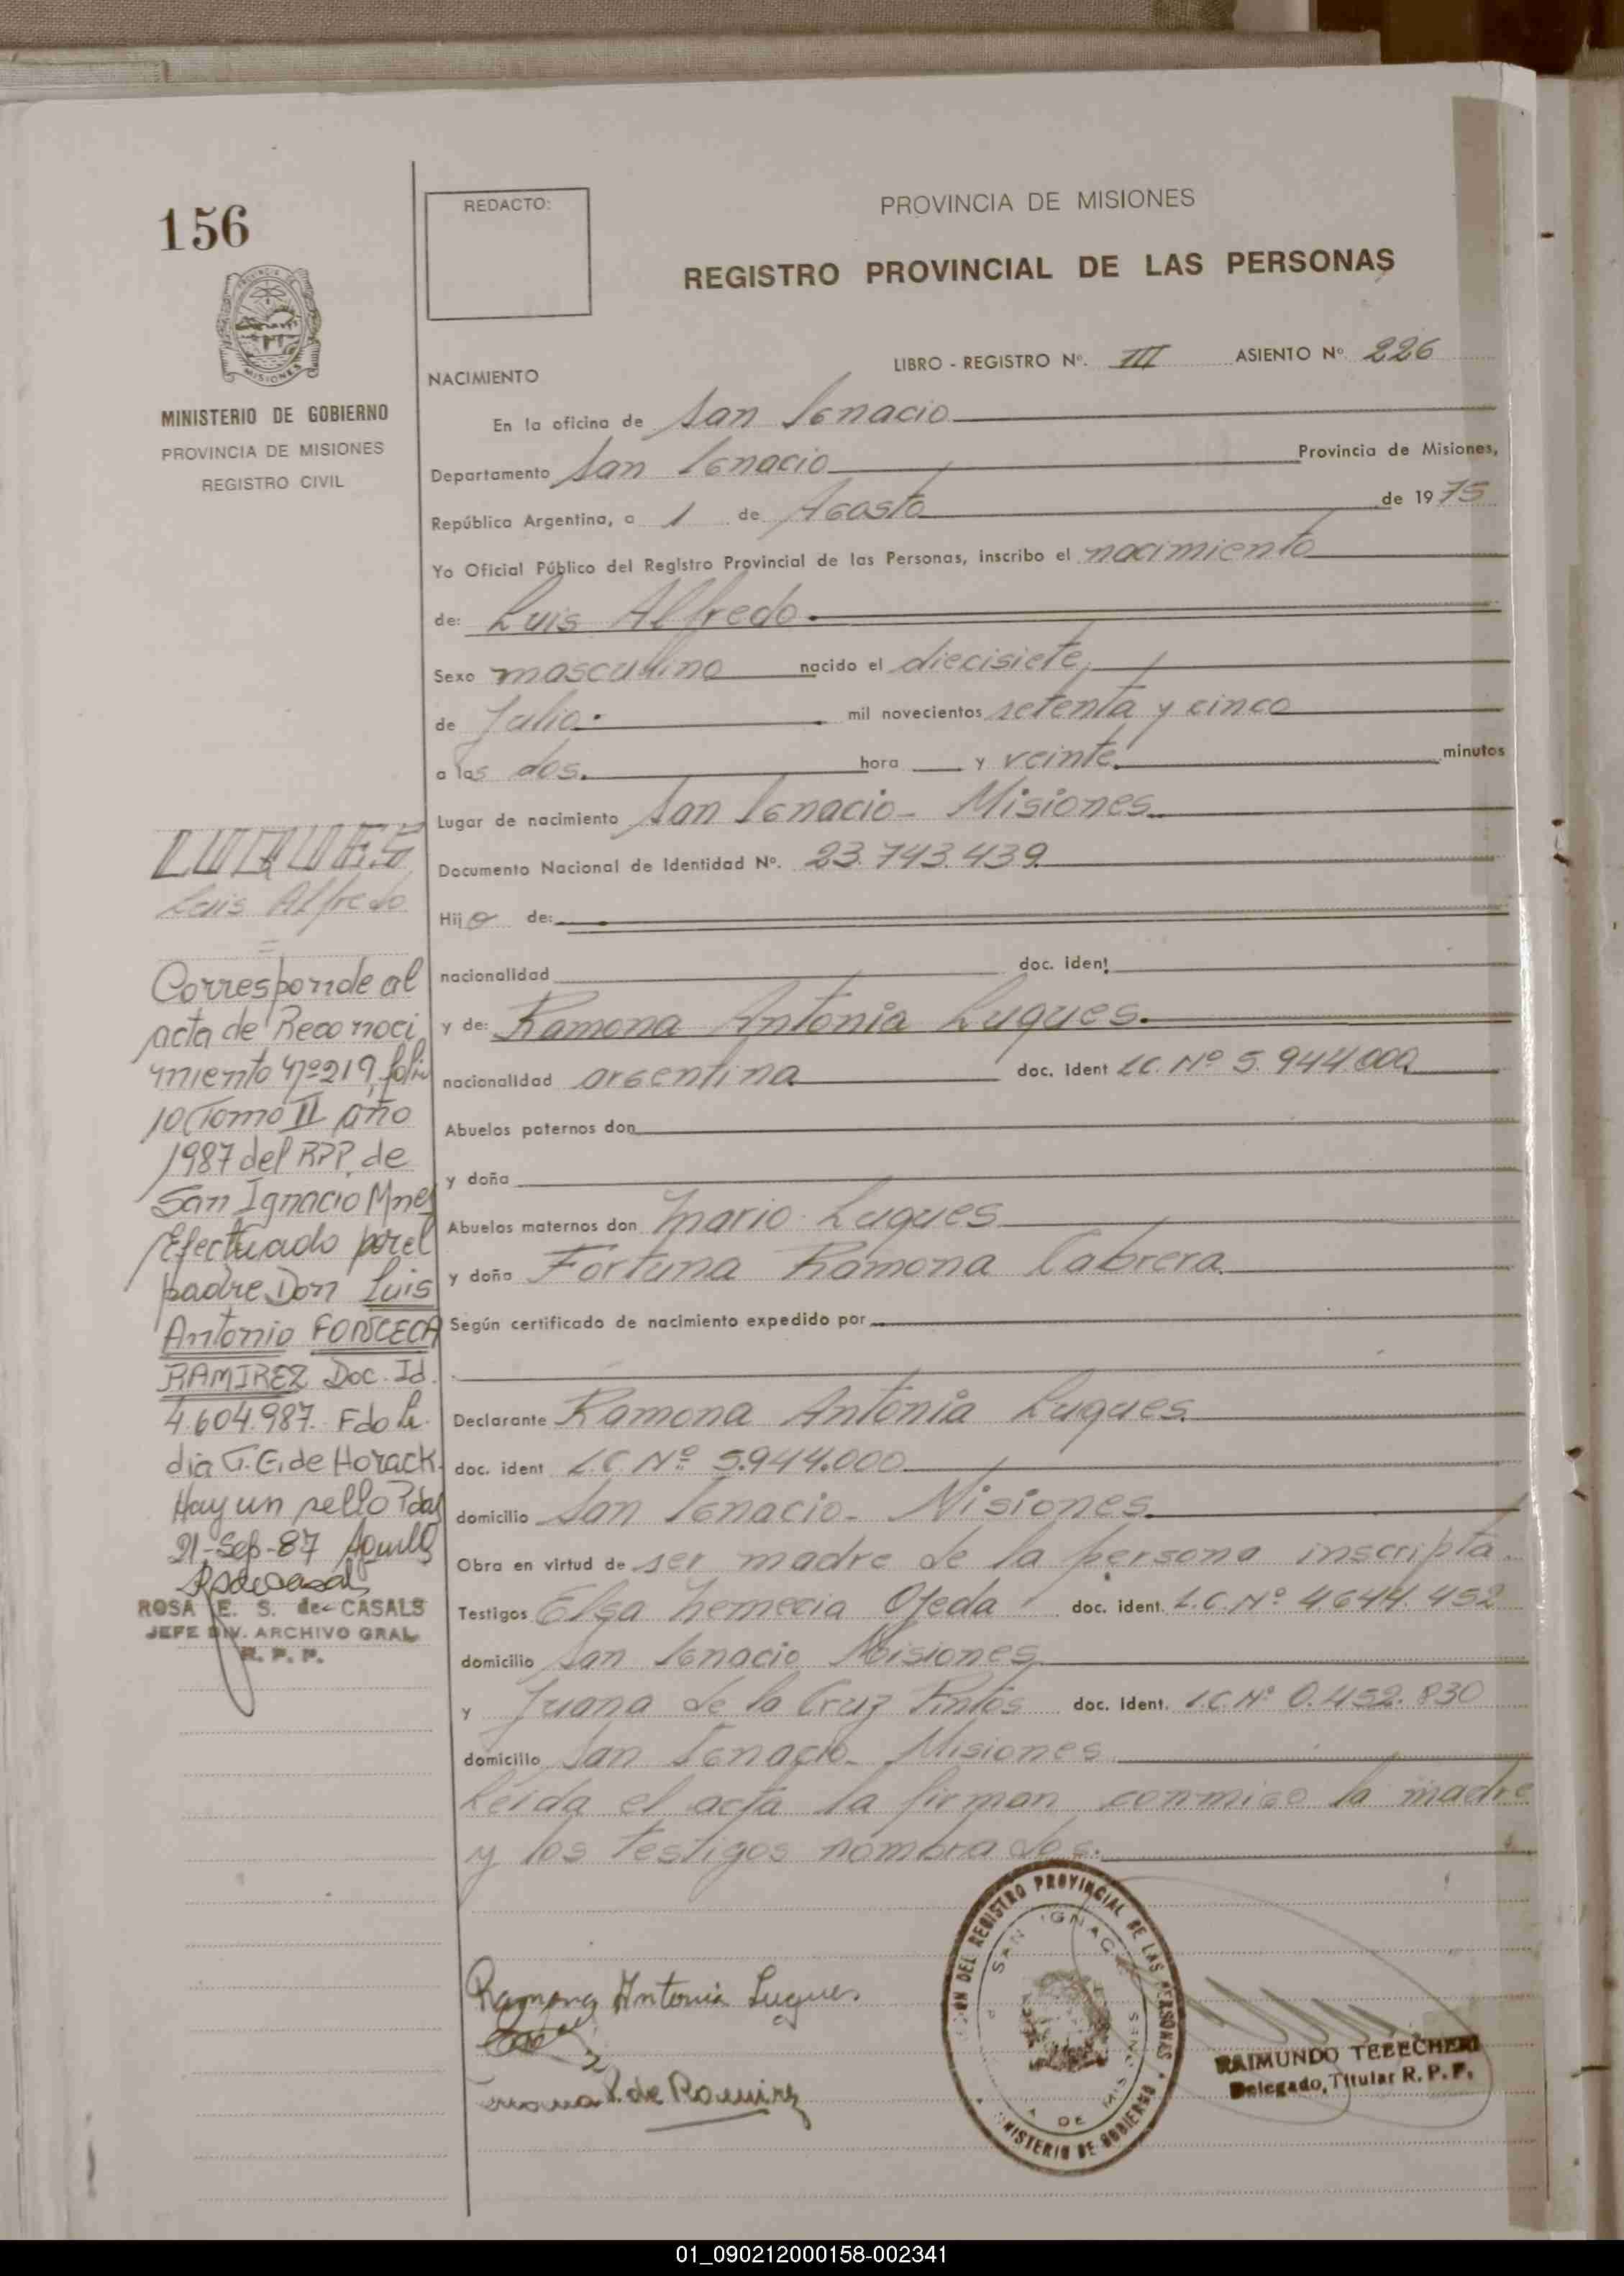 156
REDACTO:
PROVINCIA DE MISIONES
REGISTRO PROVINCIAL DE LAS PERSONAS
MISIONES
MINISTERIO DE GOBIERNO
PROVINCIA DE MISIONES
REGISTRO CIVIL
LIBRO - REGISTRO Nº. III ASIENTO Nº. 226
NACIMIENTO
En la oficina de San Ignacio
Departamento San Ignacio Provincia de Misiones,
República Argentina, a 1 de Agosto de 1975
Yo Oficial Público del Registro Provincial de las Personas, inscribo el nacimiento
de: Luis Alfredo.
Sexo masculino nacido el diecisiete
de Julio. mil novecientos setenta y cinco
a las dos. hora y veinte. minutos
Lugar de nacimiento San Ignacio - Misiones.
Documento Nacional de Identidad Nº. 23.743.439.
Hijo de:
nacionalidad doc. ident
y de: Ramona Antonia Luques.
nacionalidad argentina doc. ident L.C. Nº 5.944.000.
Abuelos paternos don
y doña
Abuelos maternos don Mario Luques
y doña Fortuna Ramona Cabrera.
Según certificado de nacimiento expedido por
Declarante Ramona Antonia Luques.
doc. ident L.C Nº 5.944.000
domicilio San Ignacio - Misiones.
Obra en virtud de ser madre de la persona inscripta.
Testigos Elsa Ojeda doc. ident. L.C. Nº 4.644.452
domicilio San Ignacio Misiones
y Juana de la Cruz Pintos doc. ident. L.C. Nº 0.452.830
domicilio San Ignacio - Misiones
Leida el acta la firman conmigo la madre
y los testigos nombrados.
LUQUES
Luis Alfredo
=
Corresponde al
acta de Reconoci
miento nº 219 folio
10 Tomo II año
1987 del RPP. de
San Ignacio Mnes
Efectuado por el
padre Don Luis
Antonio FONSECA
RAMIREZ Doc. Id.
4.604.987. Fdo Li
dia G. de Horack.
Hay un sello Pdas
21-Sep-87
ROSA E. S. de CASALS
JEFE DIV. ARCHIVO GRAL
R. P. P.
Ramona Antonia Luques.
de Ramirez
DEL REGISTRO PROVINCIAL DE LAS PERSONAS
SAN IGNACIO
DE MISIONES
MINISTERIO DE GOBIERNO
RAIMUNDO TEEECHERI
Delegado Titular R. P. P.
01_090212000158-002341